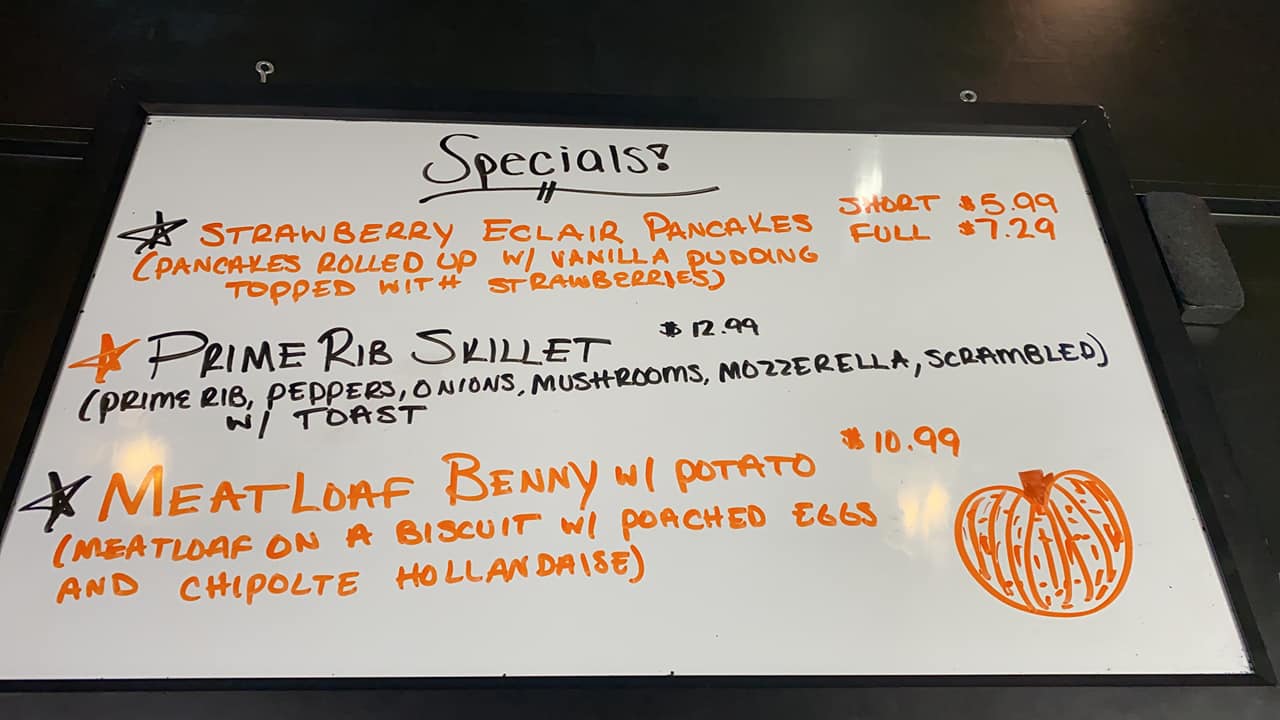 Specials!
STRAWBERRY ECLAIR PANCAKES SHORT $5.99
FULL $7.29
(PANCAKES ROLLED UP W/ VANILLA PUDDING
TOPPED WITH STRAWBERRIES)
PRIME RIB SKILLET $12.99
(PRIME RIB, PEPPERS, ONIONS, MUSHROOMS, MOZZERELLA, SCRAMBLED)
W/ TOAST
MEATLOAF BENNY W/ POTATO $10.99
(MEATLOAF ON A BISCUIT W/ POACHED EGGS
AND CHIPOLTE HOLLANDAISE)